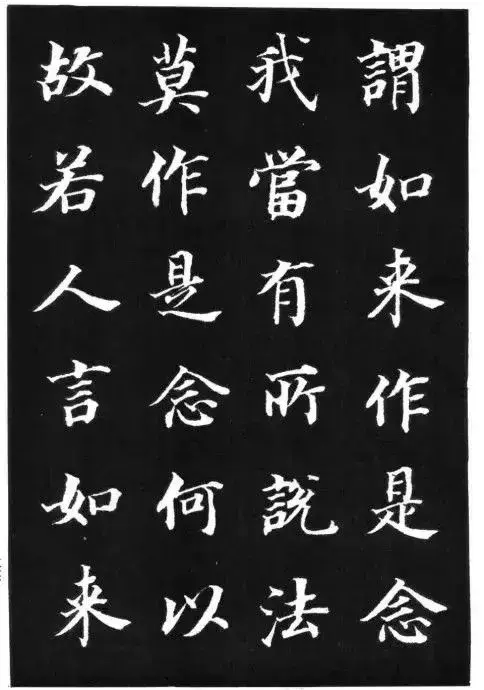 謂如来作是念
我當有所說法
莫作是念何以
故若人言如来